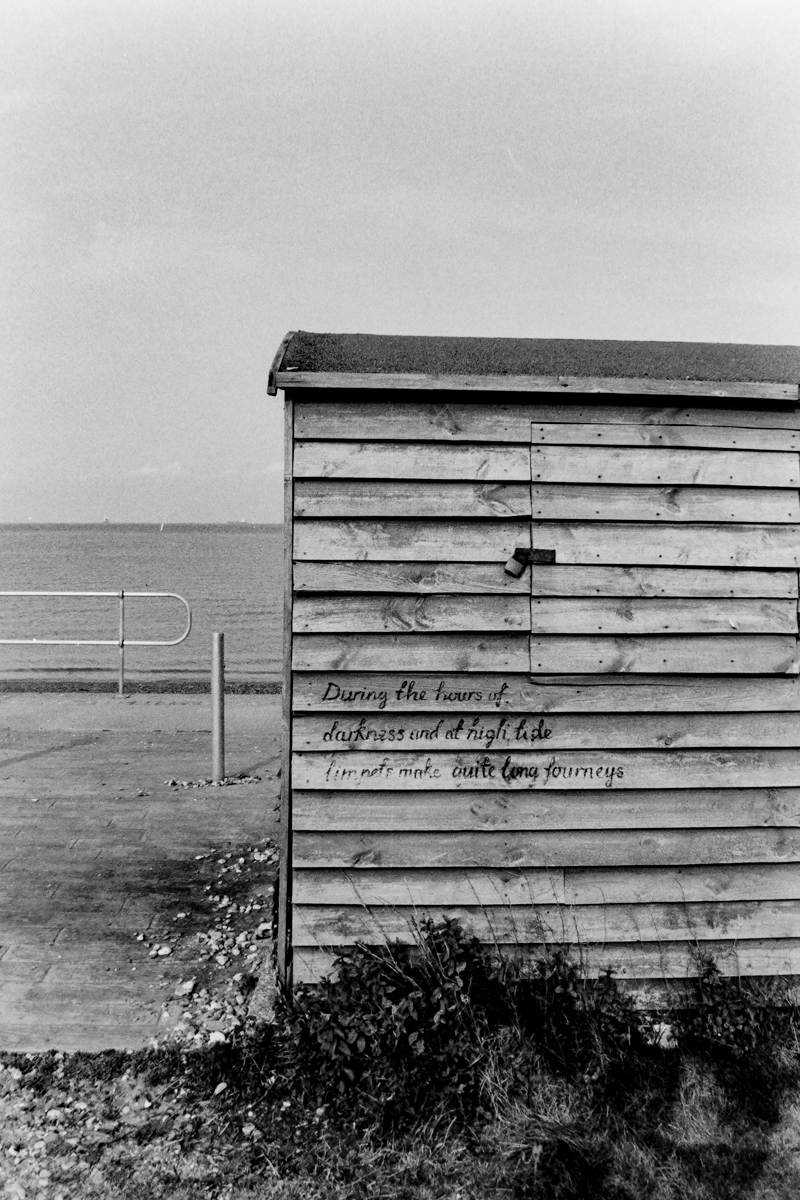 During the hours of
darkness and at high tide
limpets make quite long journeys